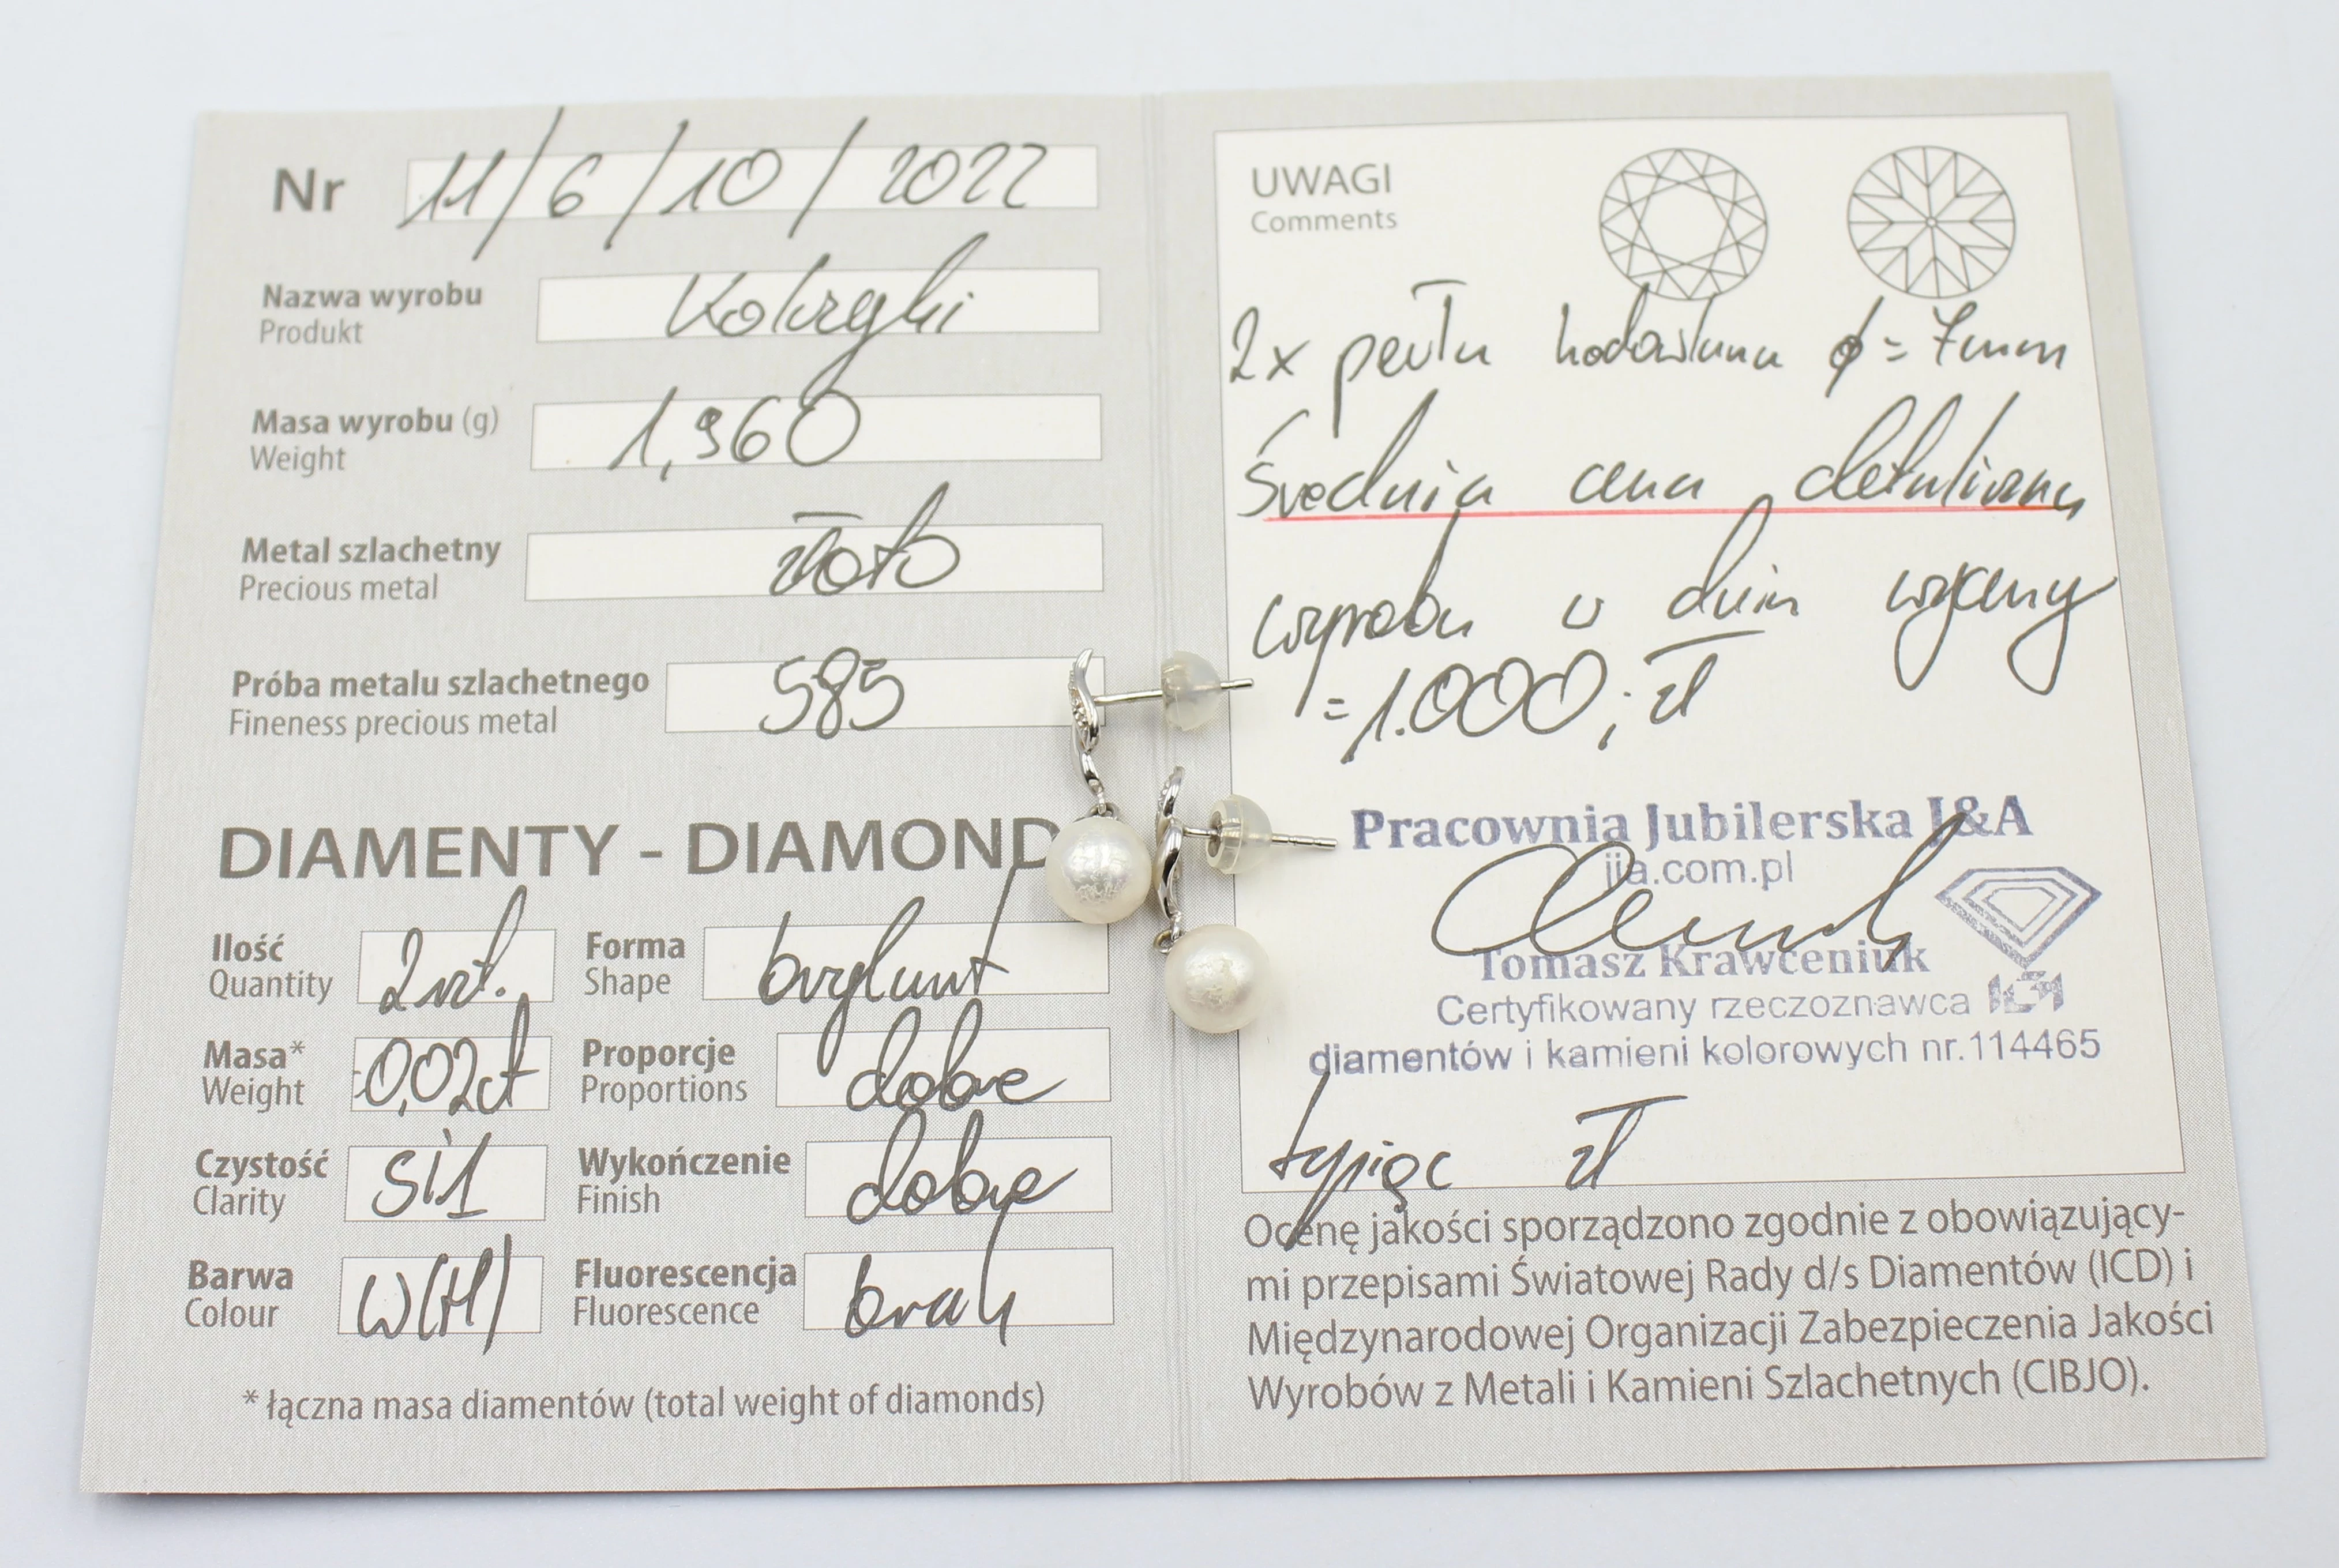 Nr 11/6/10/2022
Nazwa wyrobu Kolczyki
Produkt
Masa wyrobu (g) 1,960
Weight
Metal szlachetny złoto
Precious metal
Próba metalu szlachetnego 585
Fineness precious metal
DIAMENTY - DIAMOND
Ilość 2szt. Forma brylant
Quantity Shape
Masa* 0,02ct Proporcje dobre
Weight Proportions
Czystość Si1 Wykończenie dobre
Clarity Finish
Barwa W(H) Fluorescencja brak
Colour Fluorescence
* łączna masa diamentów (total weight of diamonds)
UWAGI
Comments
2x perła hodowlana ϕ=7mm
Średnia cena detaliczna
wyrobu w dniu wyceny
=1.000,- zł
Pracownia Jubilerska J&A
jia.com.pl
Tomasz Krawceniuk
Certyfikowany rzeczoznawca
diamentów i kamieni kolorowych nr.114465
tysiąc zł
Ocenę jakości sporządzono zgodnie z obowiązujący-
mi przepisami Światowej Rady d/s Diamentów (ICD) i
Międzynarodowej Organizacji Zabezpieczenia Jakości
Wyrobów z Metali i Kamieni Szlachetnych (CIBJO).